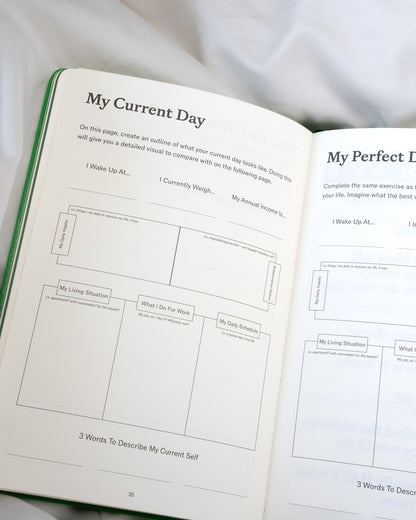 My Current Day
On this page, create an outline of what your current day looks like. Doing this
will give you a detailed visual to compare with on the following page.
I Wake Up At...
I Currently Weigh...
My Annual Income Is...
i.e. things I do daily to improve my life, if any.
My Daily Habits
My Living Situation
i.e. apartment? with roommates? by the beach?
What I Do For Work
My job, do I like it? Why/why not?
My Daily Schedule
i.e. a typical day in my life
3 Words To Describe My Current Self
30
My Perfect D
Complete the same exercise as
your life. Imagine what the best v
I Wake Up At...
i.e. things I do daily to improve my life, if any.
My Daily Habits
My Living Situation
i.e. apartment? with roommates? by the beach?
What I
3 Words To Descri